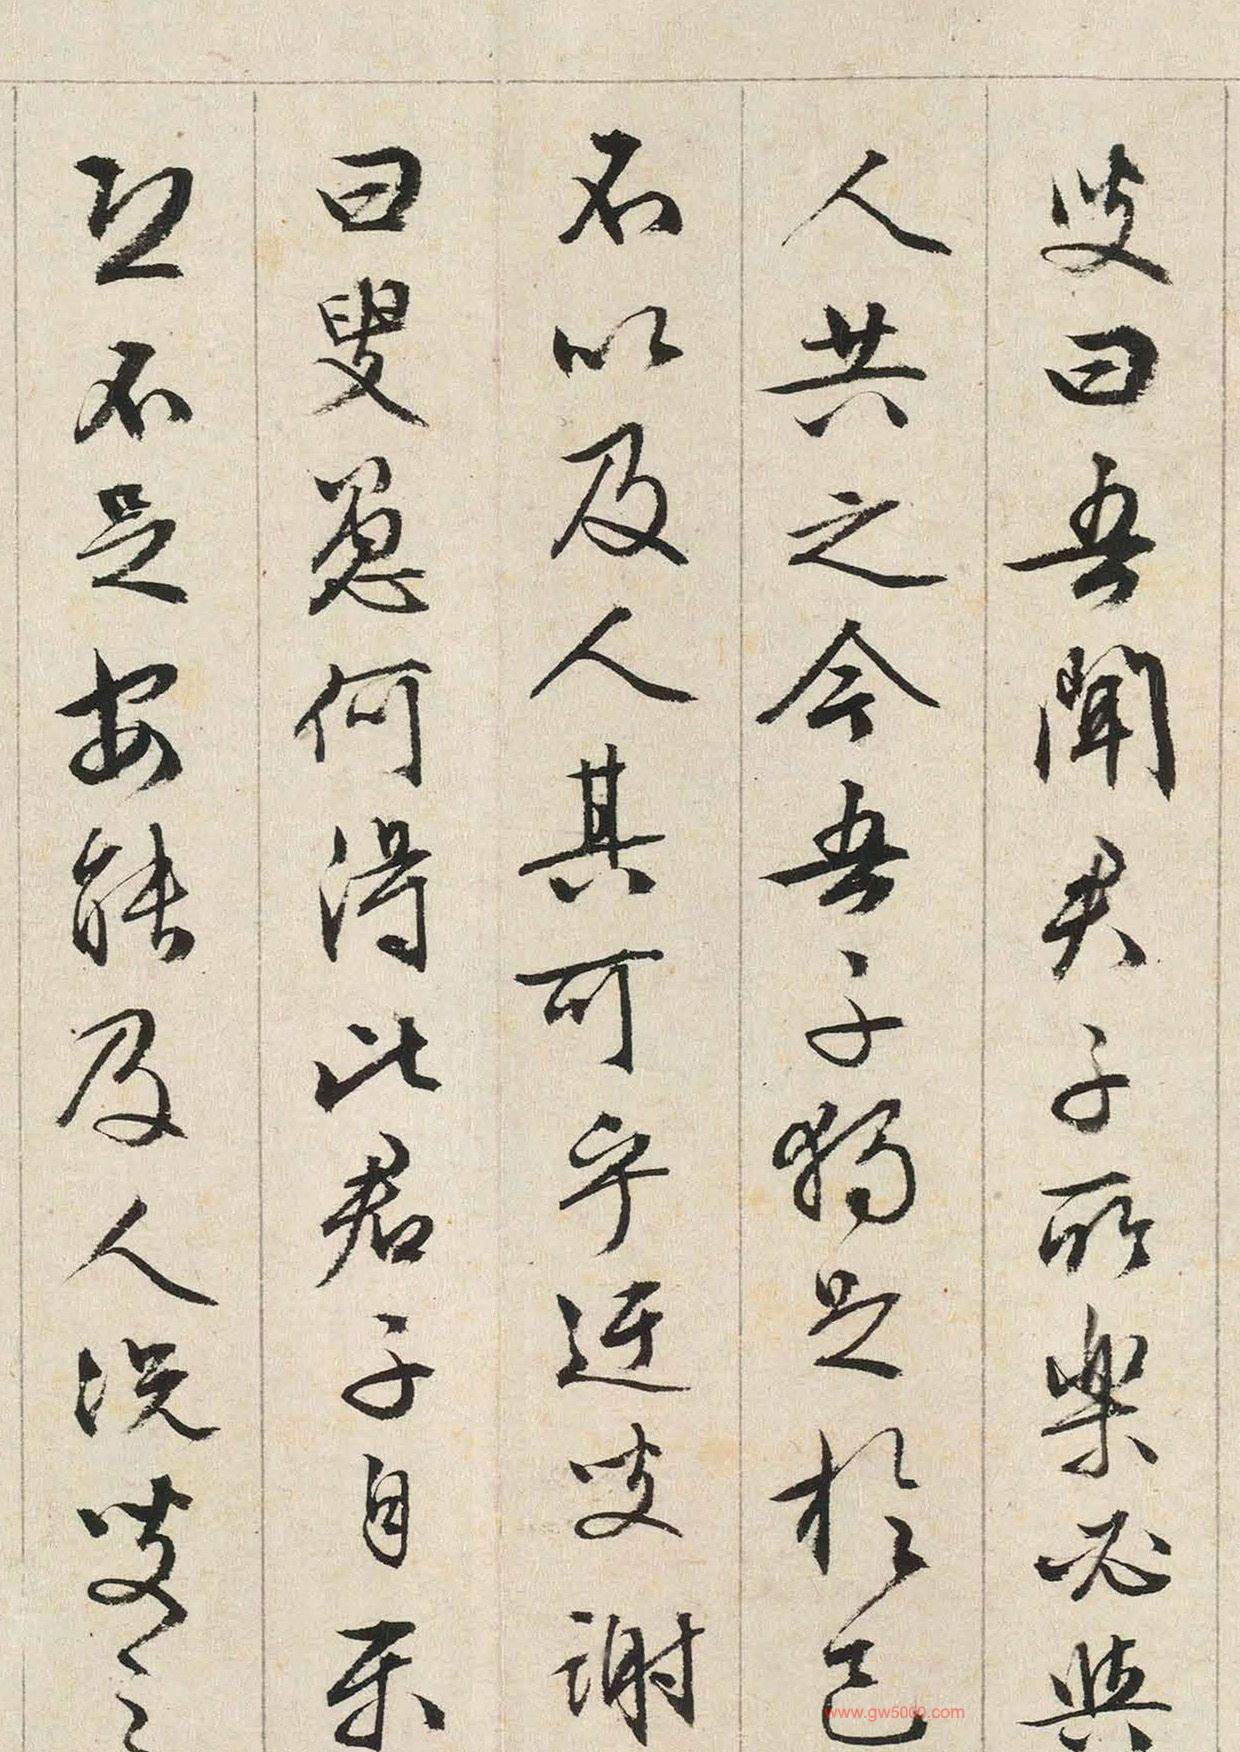 叟曰吾聞君子所樂必與
人共之今吾子獨足於己
不以及人其可乎迂叟謝
曰叟愚何得比君子自樂
恐不足安能及人況叟之
www.gw5000.com